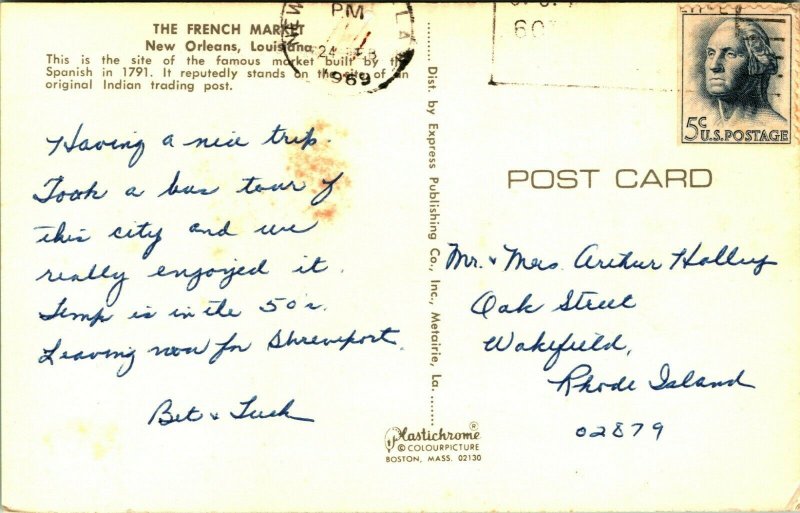 THE FRENCH MARKET
New Orleans, Louisiana
This is the site of the famous market built by the
Spanish in 1791. It reputedly stands on the site of an
original Indian trading post.
Having a nice trip.
Took a bus tour of
this city and we
really enjoyed it.
Temp is in the 50s.
Leaving now for Shreveport.
Bet & Tuck
PM
24
1969
Dist. by Express Publishing Co., Inc., Metairie, La.
Plastichrome ®
© COLOURPICTURE
BOSTON, MASS. 02130
5c U.S. POSTAGE
POST CARD
Mr. & Mrs. Arthur Holley
Oak Street
Wakefield,
Rhode Island
02879